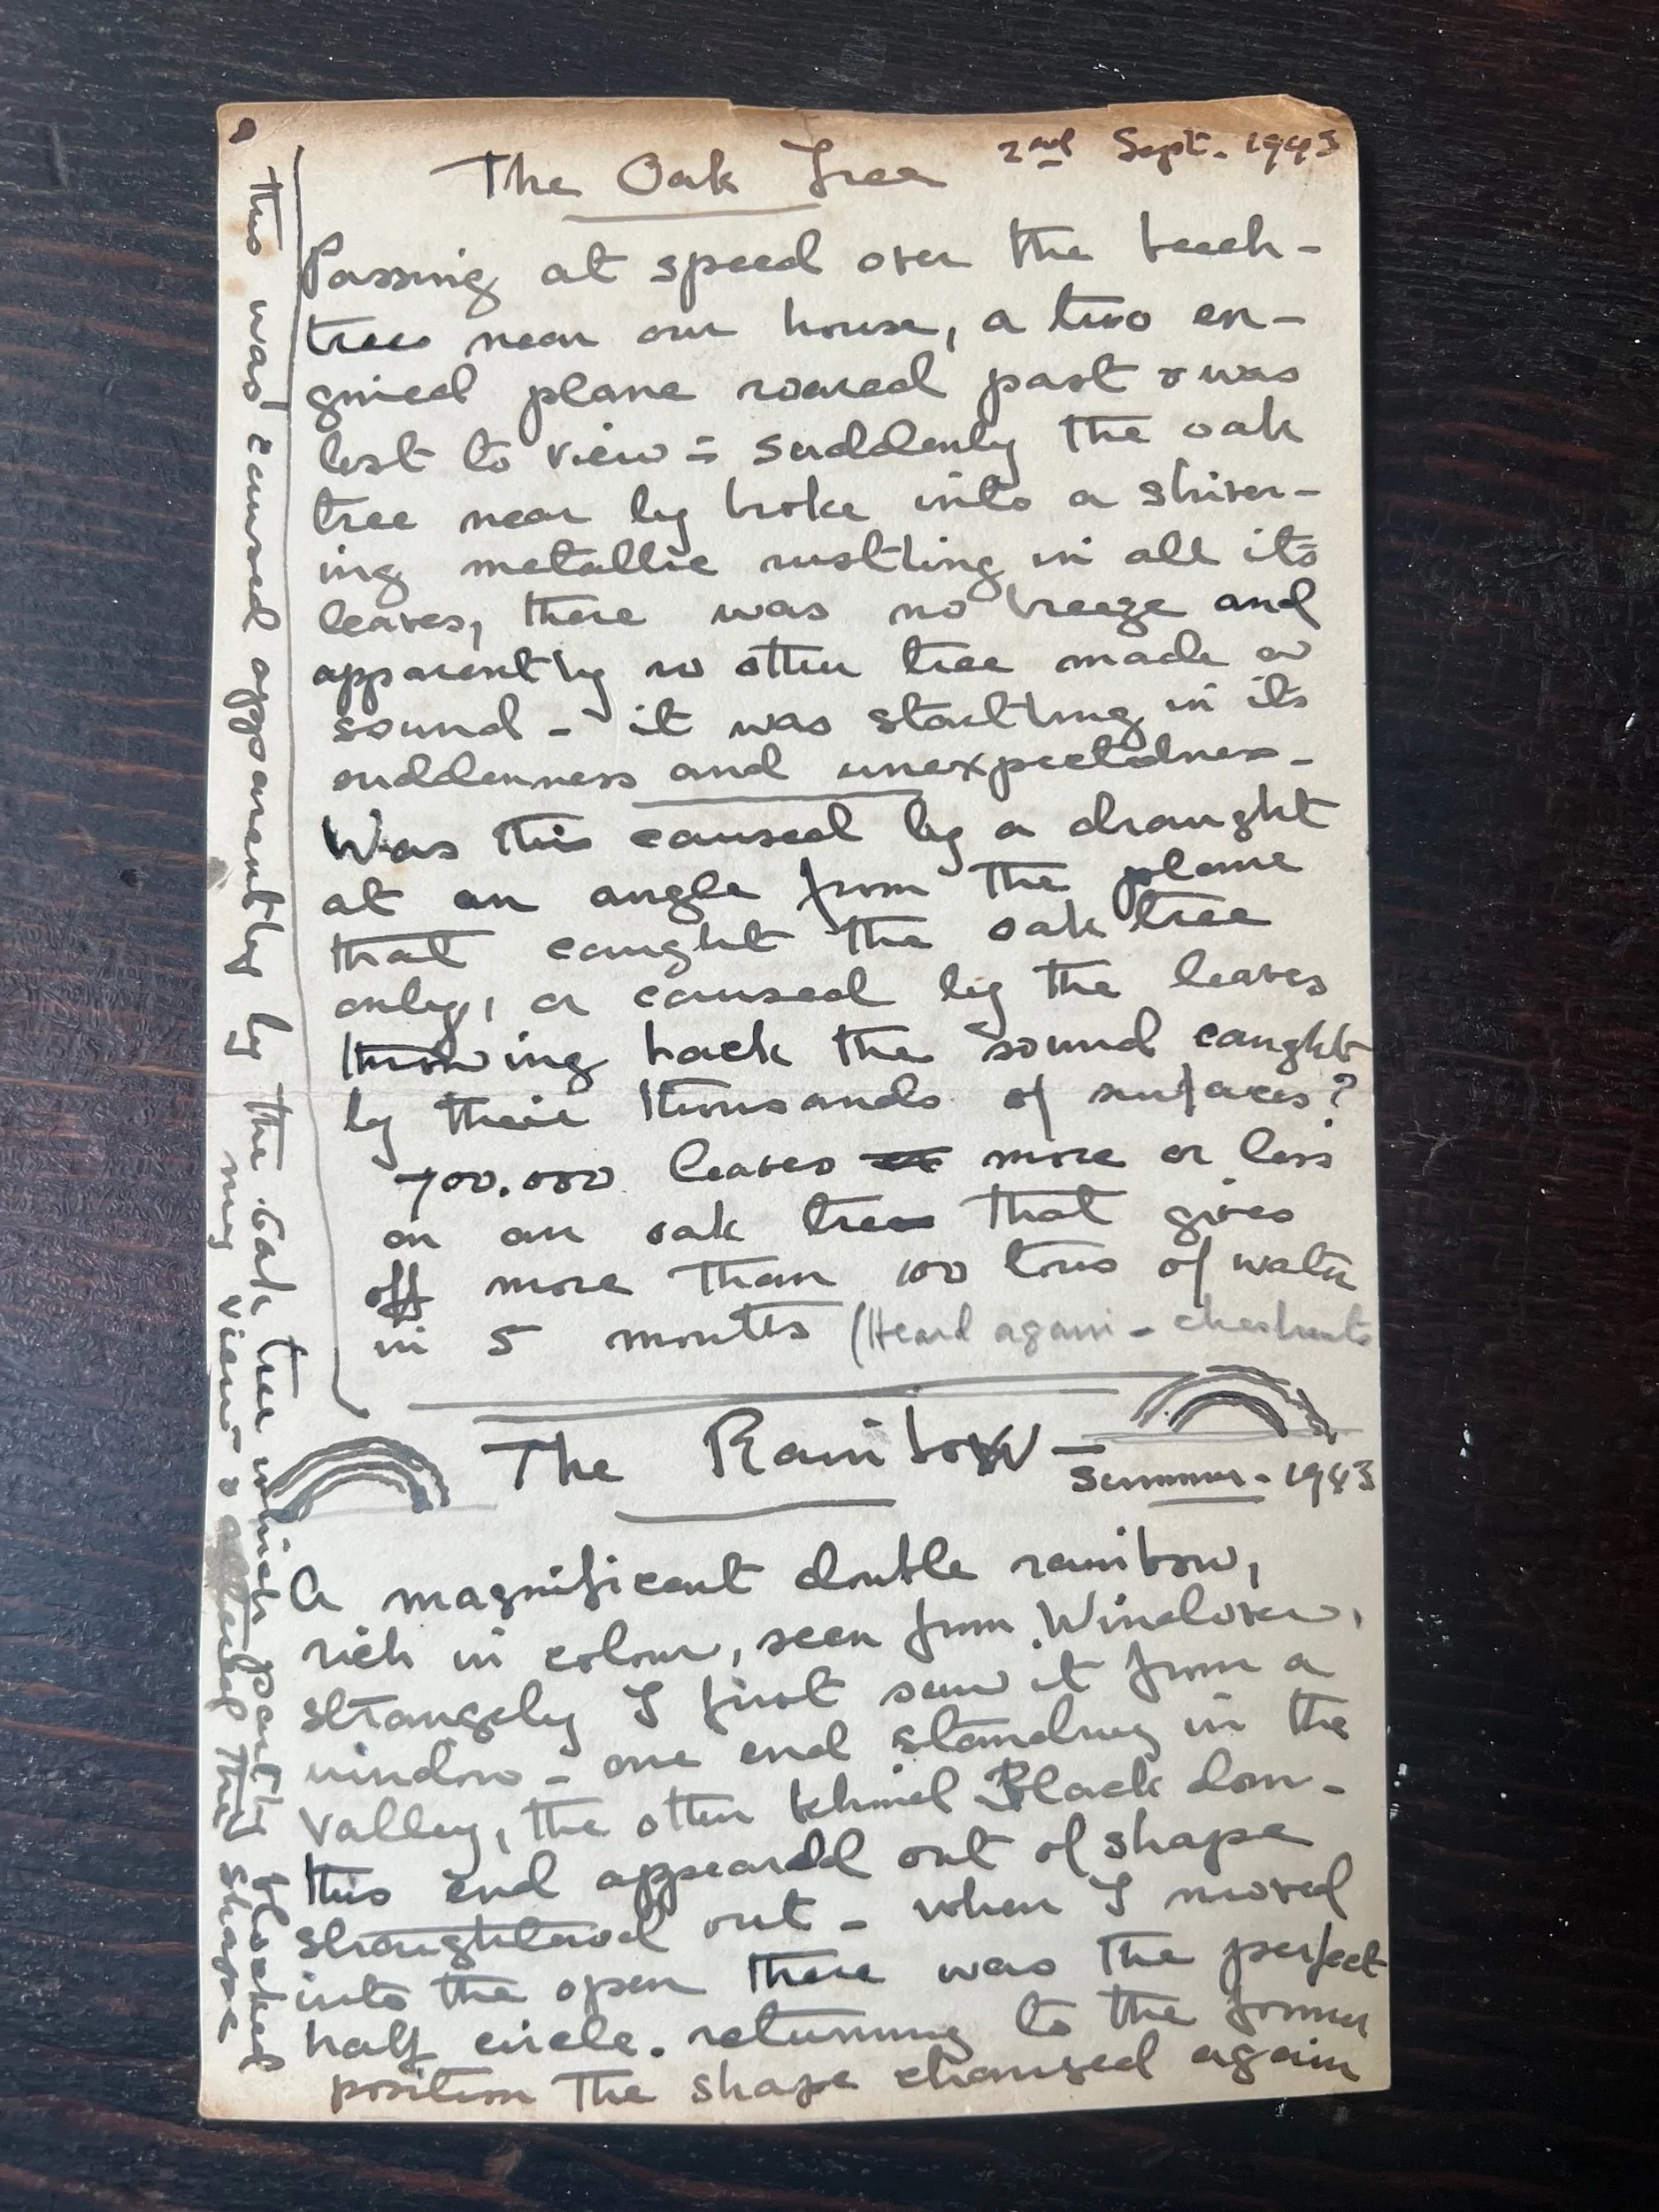 The Oak Tree 2nd Sept. 1943
Passing at speed over the beech-
trees near our house, a two en-
gined plane roared past & was
lost to view - suddenly the oak
tree near by broke into a shiver-
ing metallic rustling in all its
leaves, there was no breeze and
apparently no other tree made a
sound - it was startling in its
suddenness and unexpectedness -
Was this caused by a draught
at an angle from the plane
that caught the oak tree
only, or caused by the leaves
throwing back the sound caught
by their thousands of surfaces?
700.000 leaves more or less
on an oak tree that gives
off more than 100 tons of water
in 5 months (Heard again - chestnuts
The Rainbow -
Summer - 1943
A magnificent double rainbow,
rich in colour, seen from Windover,
strangely I first saw it from a
window - one end standing in the
valley, the other behind Black down -
this end appeared out of shape
straightened out - when I moved
into the open there was the perfect
half circle. returning to the former
position the shape changed again
this was caused apparently by the Oak tree which partly blocked
my view & altered the shape